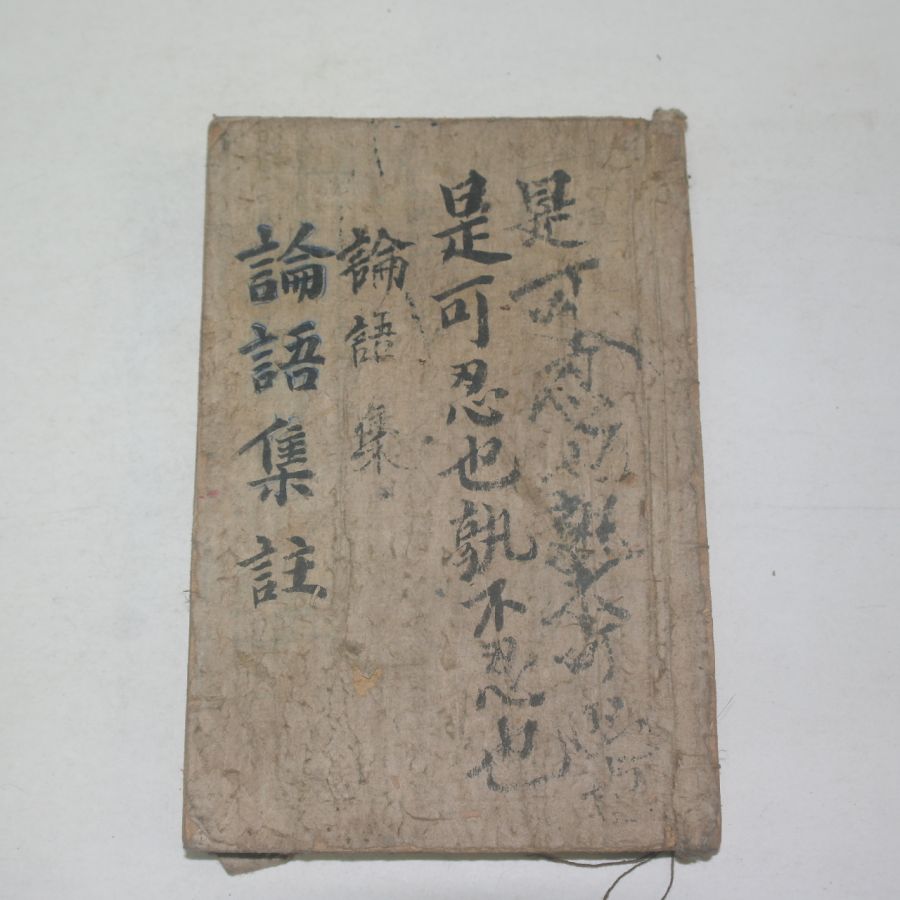 是可忍也孰不可忍也
是可忍也孰不忍也
論語集
論語集註